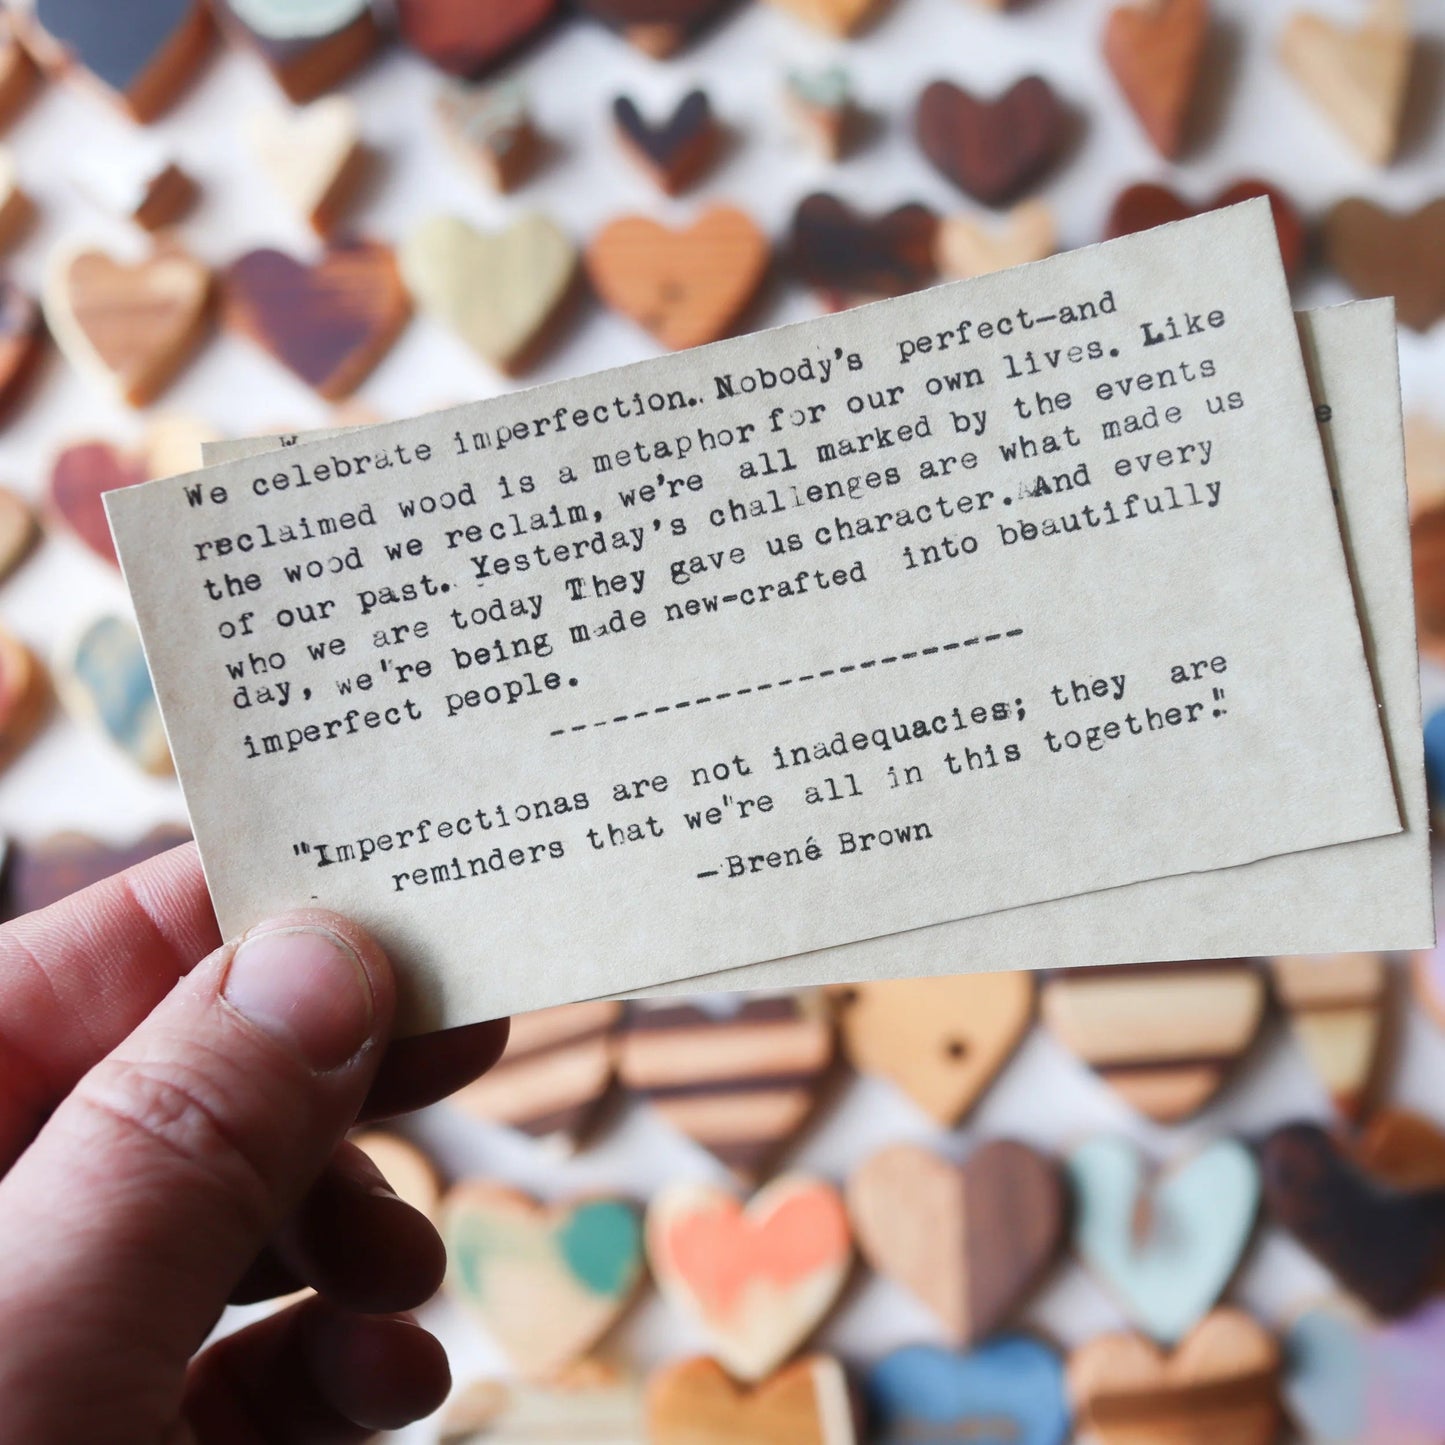 We celebrate imperfection. Nobody's perfect—and
reclaimed wood is a metaphor for our own lives. Like
the wood we reclaim, we're all marked by the events
of our past. Yesterday's challenges are what made us
who we are today They gave us character. And every
day, we're being made new-crafted into bbautifully
imperfect people.
----------------------
"Imperfectionas are not inadequacies; they are
reminders that we"re all in this together."
—Brené Brown
W
e